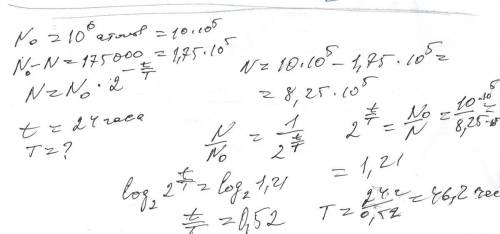 N₀ = 10⁶ атомов = 10·10⁵
N₀ - N = 175000 = 1,75·10⁵
N = N₀ · 2^(-t/T)
t = 24 часа
T = ?
N = 10·10⁵ - 1,75·10⁵ =
= 8,25·10⁵
N/N₀ = 1/2^(t/T)
2^(t/T) = N₀/N = 10·10⁵/8,25·10⁵ =
= 1,21
log₂ 2^(t/T) = log₂ 1,21
t/T = 0,52
T = 24ч/0,52 = 46,2 час